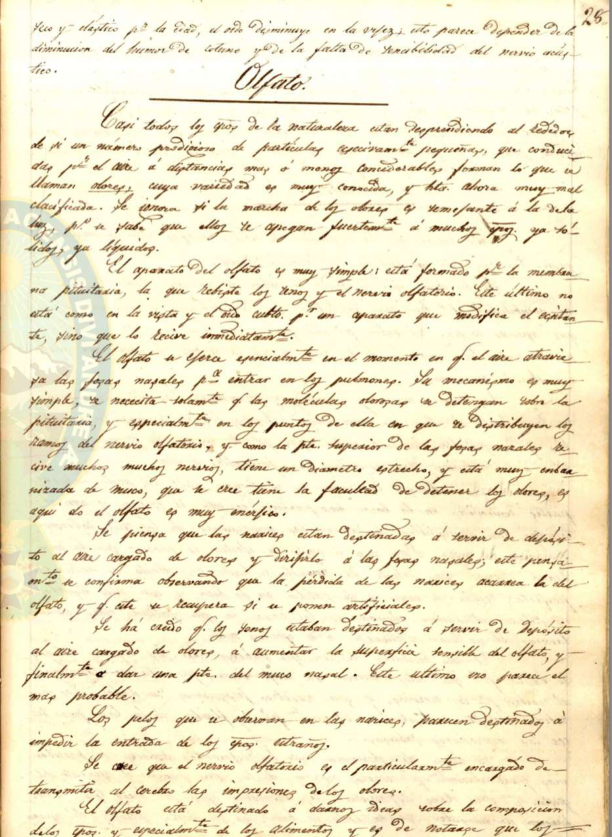 28
seco y elastico pr. la edad, el oido disminuye en la vejez: esto parece depender de la
diminucion del humor de cotuno y de la falta de sencibilidad del nervio acús-
tico.
Olfato.
Casi todos los cpos de la naturaleza estan desprendiendo al rededor
de si un numero prodijioso de particulas escecivamte. pequeñas, que conduci-
das pr. el aire á distancias mas ó menos considerables forman lo que se
llaman olores, cuya variedad es muy conocida, y hta. ahora muy mal
clasificada. Se ignora si la marcha de los olores es semejante á la de la
luz, p.o se sabe que ellos se apegan fuertemte. á muchos cpos ya só-
lidos, ya líquidos.
El aparato del olfato es muy simple: está formado pr. la membra
na pituitaria, la que rebiste los senos y el nervio olfatorio. Este ultimo no
está como en la vista y el oido cubto. pr. un aparato que modifica el ecsitan
te, sino que lo recive inmediatamte.
El olfato se ejerce esencialmte. en el momento en q. el aire atravie
sa las fosas nasales pa. entrar en los pulmones. Su mecanismo es muy
simple, se necesita solamte. q. las moléculas olorosas se detengan sobre la
pituitaria, y especialmte. en los puntos de ella en que se distribuyen los
ramos del nervio olfatorio, y como la pte. superior de las fosas nasales re
cive muchos muchos nervios, tiene un diametro estrecho, y está muy embar
nizada de muco, que se cree tiene la facultad de detener los olores, es
aqui do. el olfato es muy enerjico.
Se piensa que las narices estan destinadas á servir de depósi
to al aire cargado de olores y dirijirlo á las fosas nasales; este pensa
mto. se confirma observando que la pérdida de las narices acarrea la del
olfato, y q. este se recupera si se ponen artificiales.
Se há creido q. los senos estaban destinados á servir de depósito
al aire cargado de olores, á aumentar la superficie sensible del olfato, y
finalmte. a dar una pte. del muco nasal. Este ultimo uso parece el
mas probable.
Los pelos que se observan en las narices, parecen destinados á
impedir la entrada de los cpos. estraños.
Se cree que el nervio olfatorio es el particularmte. encargado de
transmitir al cerebro las impresiones de los olores.
El olfato está destinado á darnos ideas sobre la composicion
de los cpos. y especialmte. de los alimentos y es de notarse que los